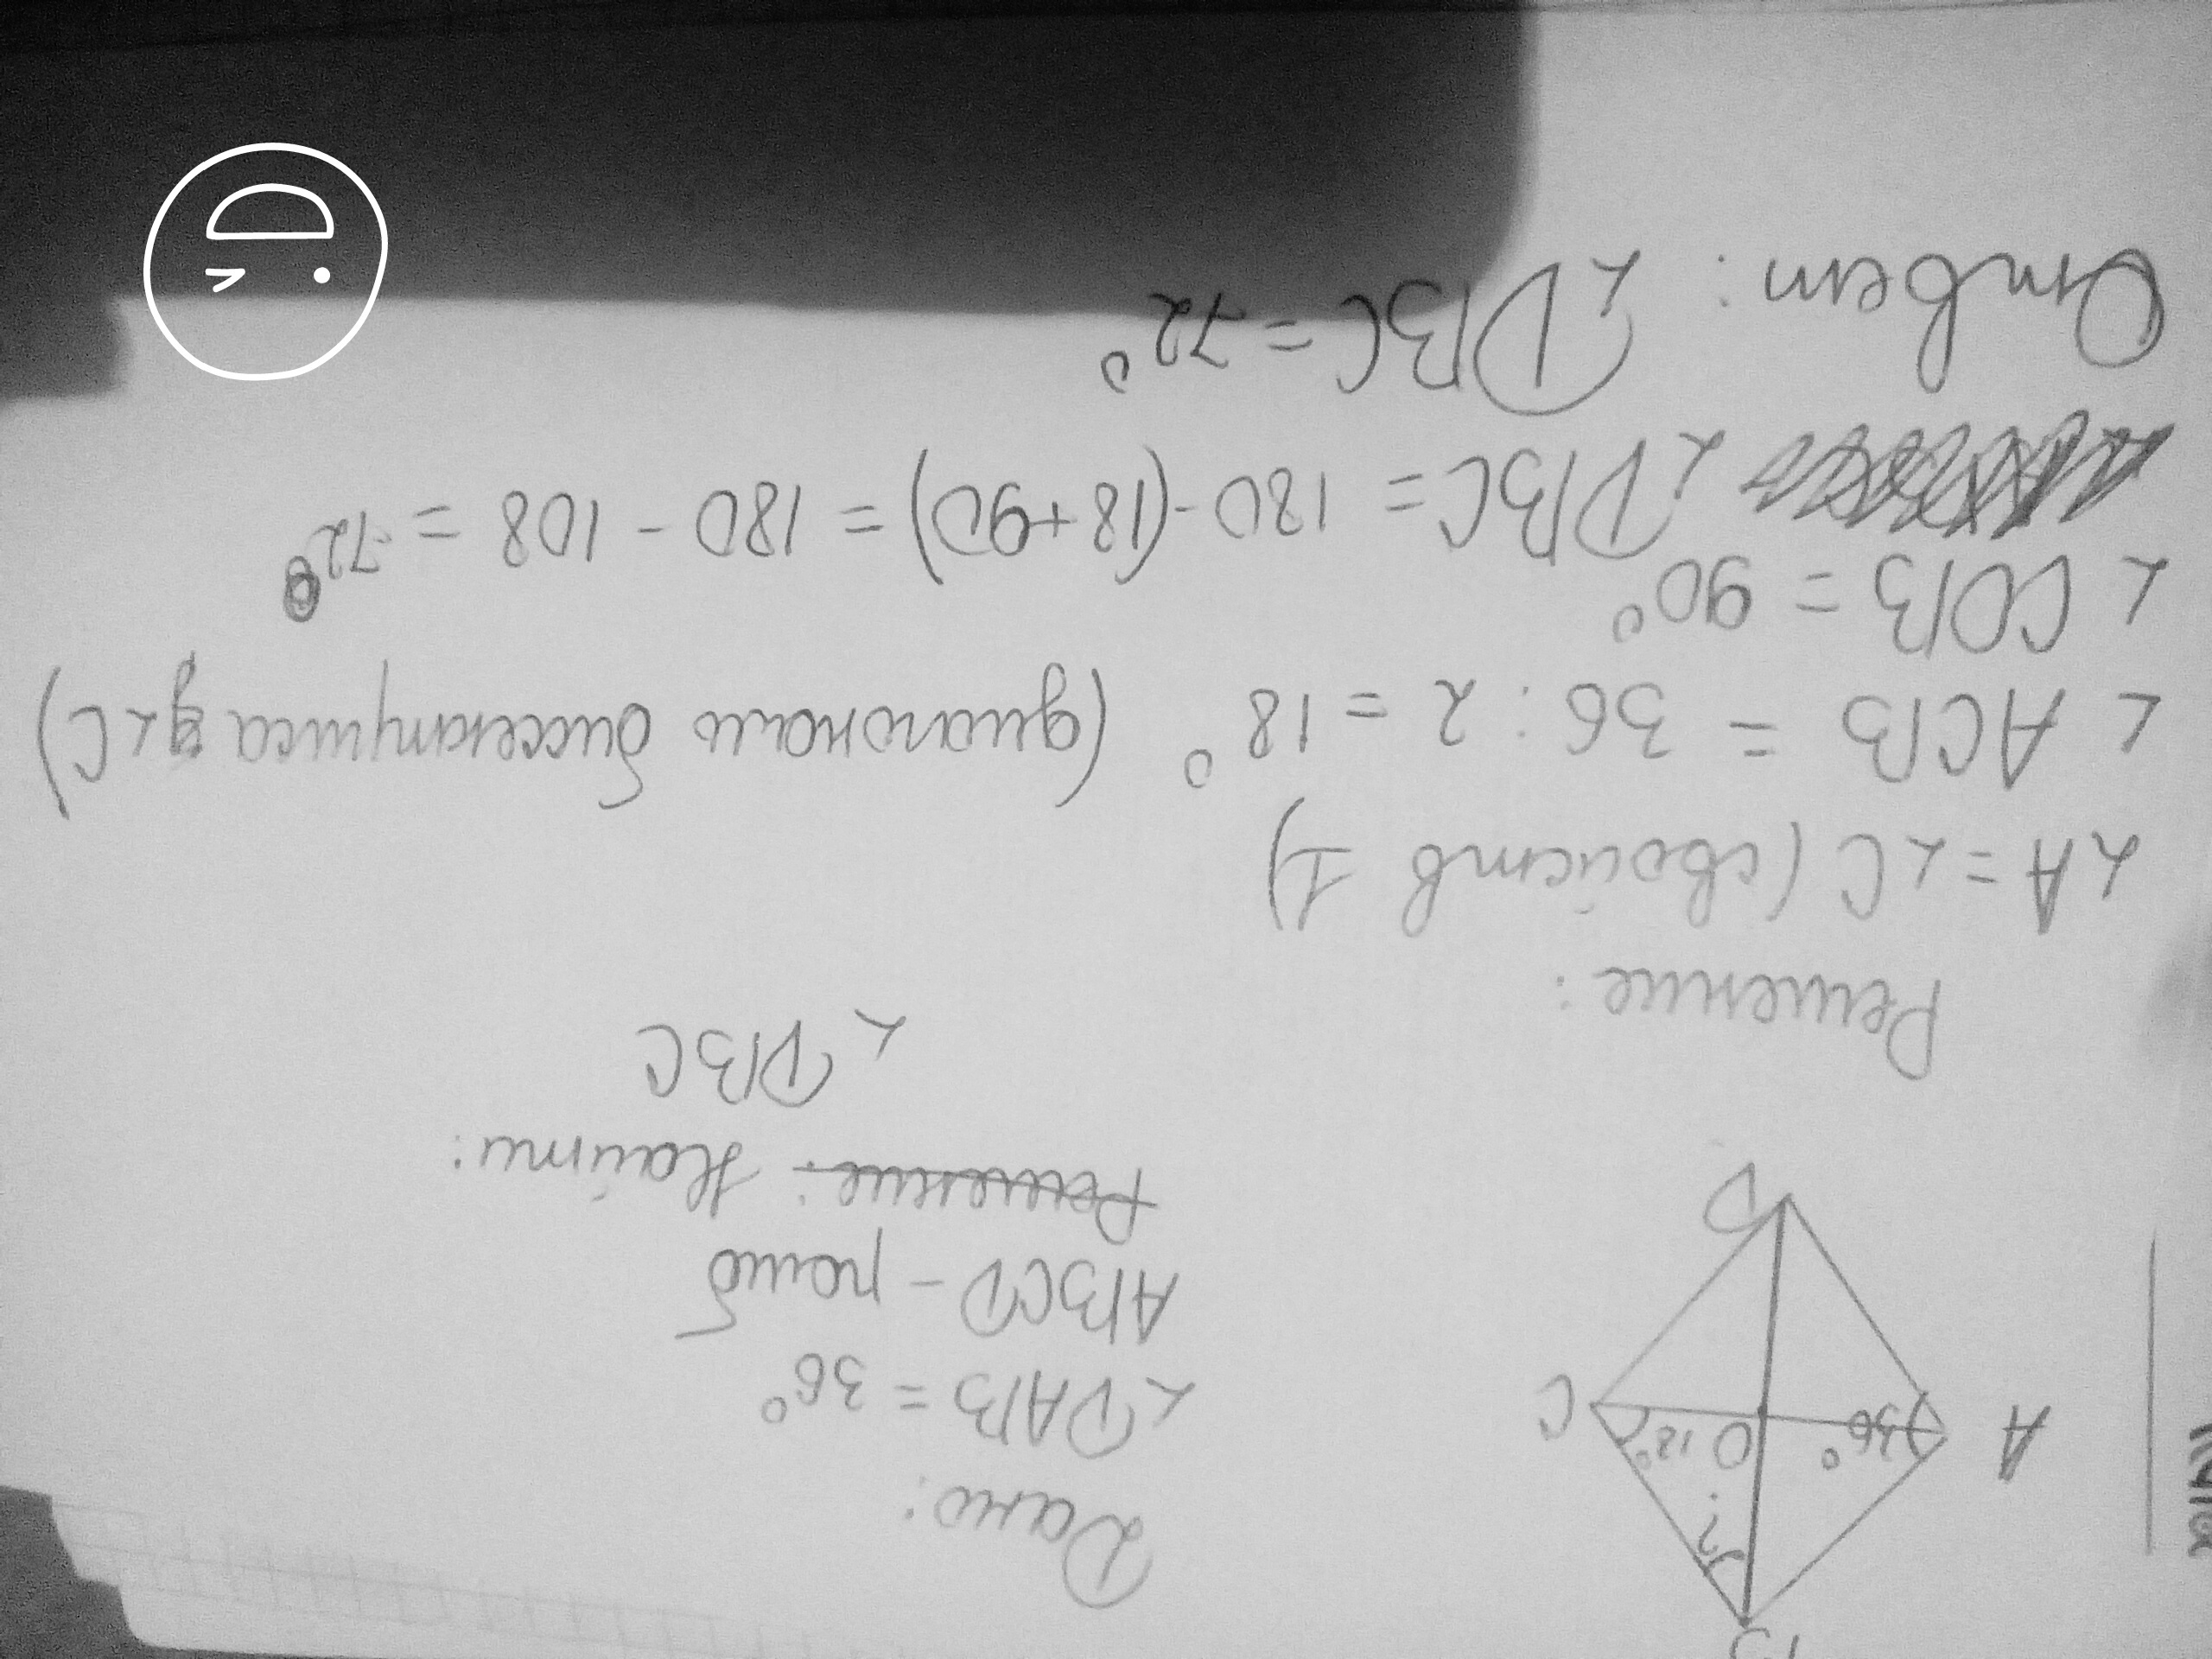 Дано:
∠DAB = 36°
ABCD - ромб
Решение: Найти:
∠DBC
A
36°
O
18°
C
?
D
Решение:
∠A = ∠C (свойств 1)
∠ACB = 36 : 2 = 18° (диагонали биссектриса ∠C)
∠COB = 90°
∠DBC = 180 - (18+90) = 180 - 108 = 72°
Ответ: ∠DBC = 72°